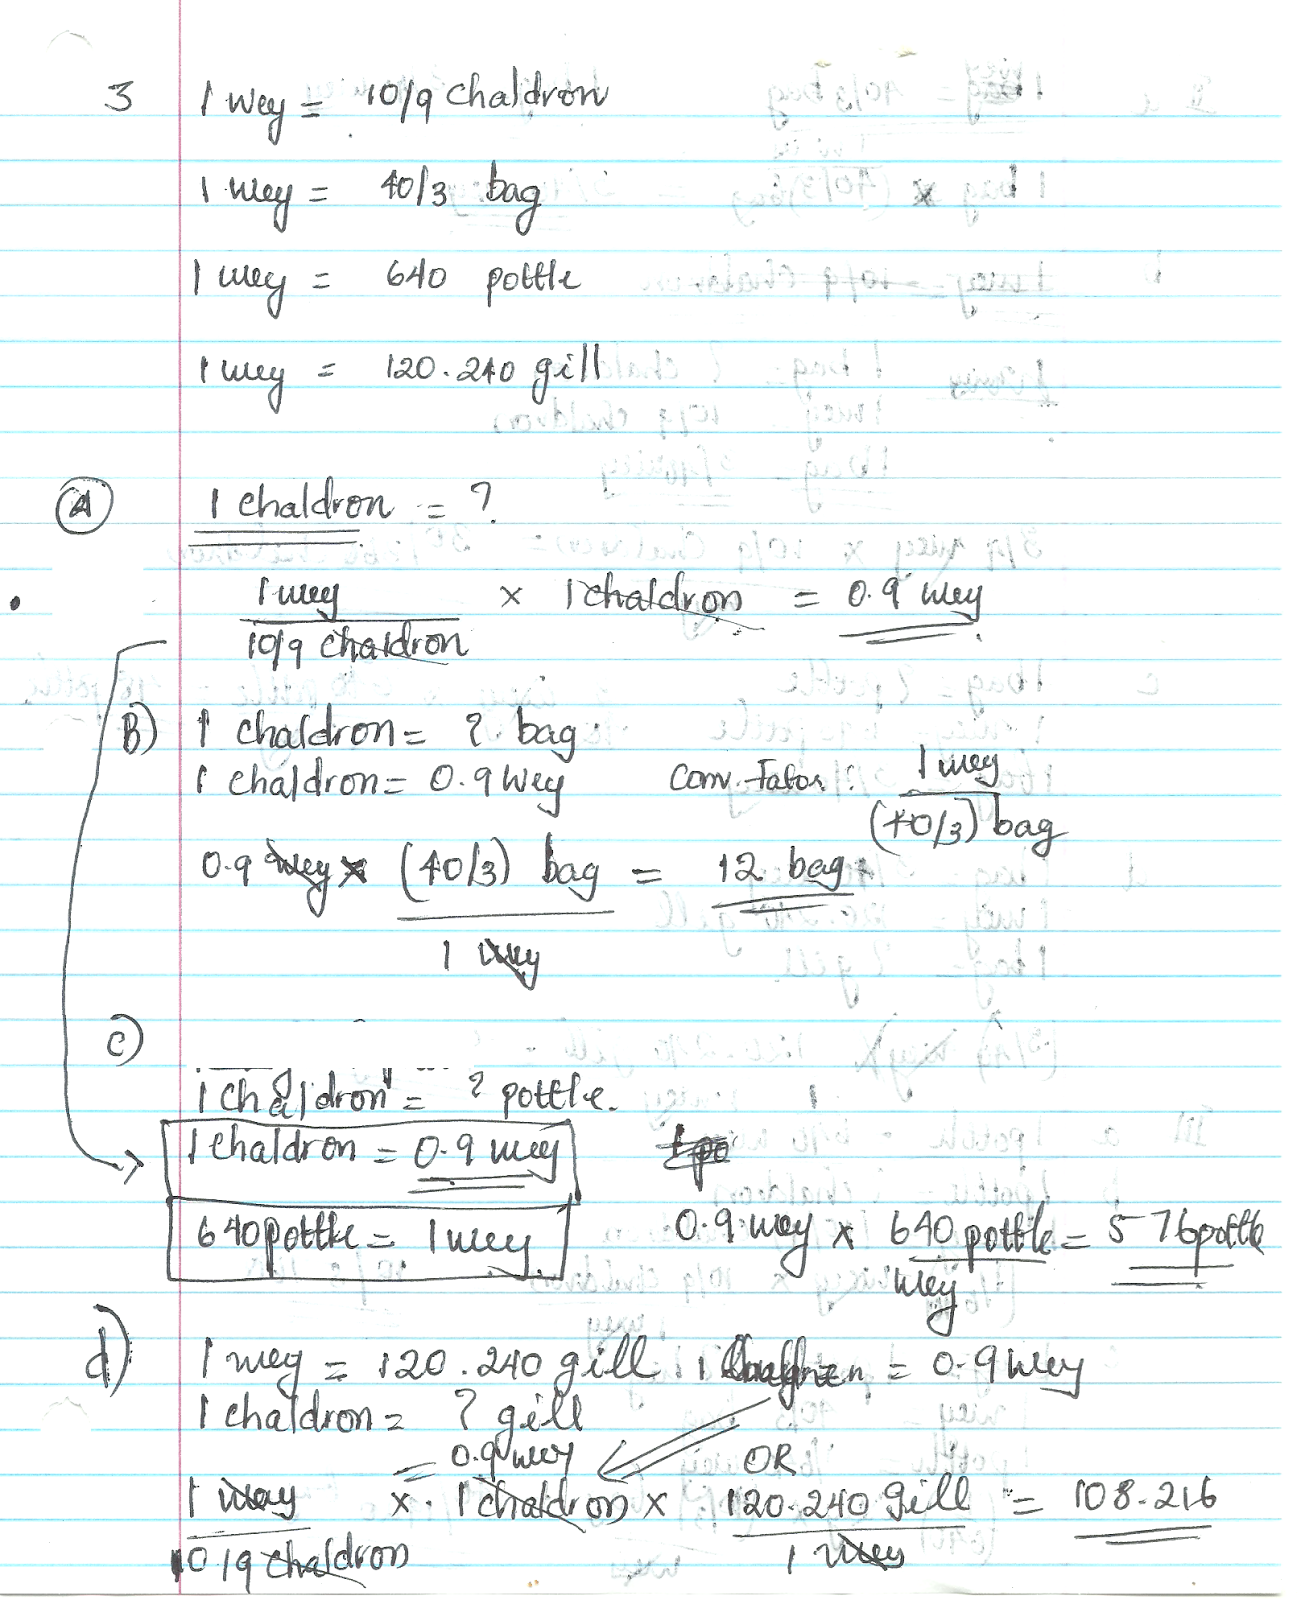 3 1 wey = 10/9 chaldron
1 wey = 40/3 bag
1 wey = 640 pottle
1 wey = 120.240 gill
A 1 chaldron = ?
1 wey × 1 chaldron = 0.9 wey
10/9 chaldron
B) 1 chaldron = ? bag
1 chaldron = 0.9 wey Conv. Fator : 1 wey
(40/3) bag
0.9 wey × (40/3) bag = 12 bag
1 wey
c)
1 chaldron = ? pottle.
1 chaldron = 0.9 wey
640 pottle = 1 wey 0.9 wey × 640 pottle = 576 pottle
wey
d) 1 wey = 120.240 gill 1 = 0.9 wey
1 chaldron = ? gill
= 0.9 wey OR
1 wey × 1 chaldron × 120.240 gill = 108.216
10/9 chaldron 1 wey